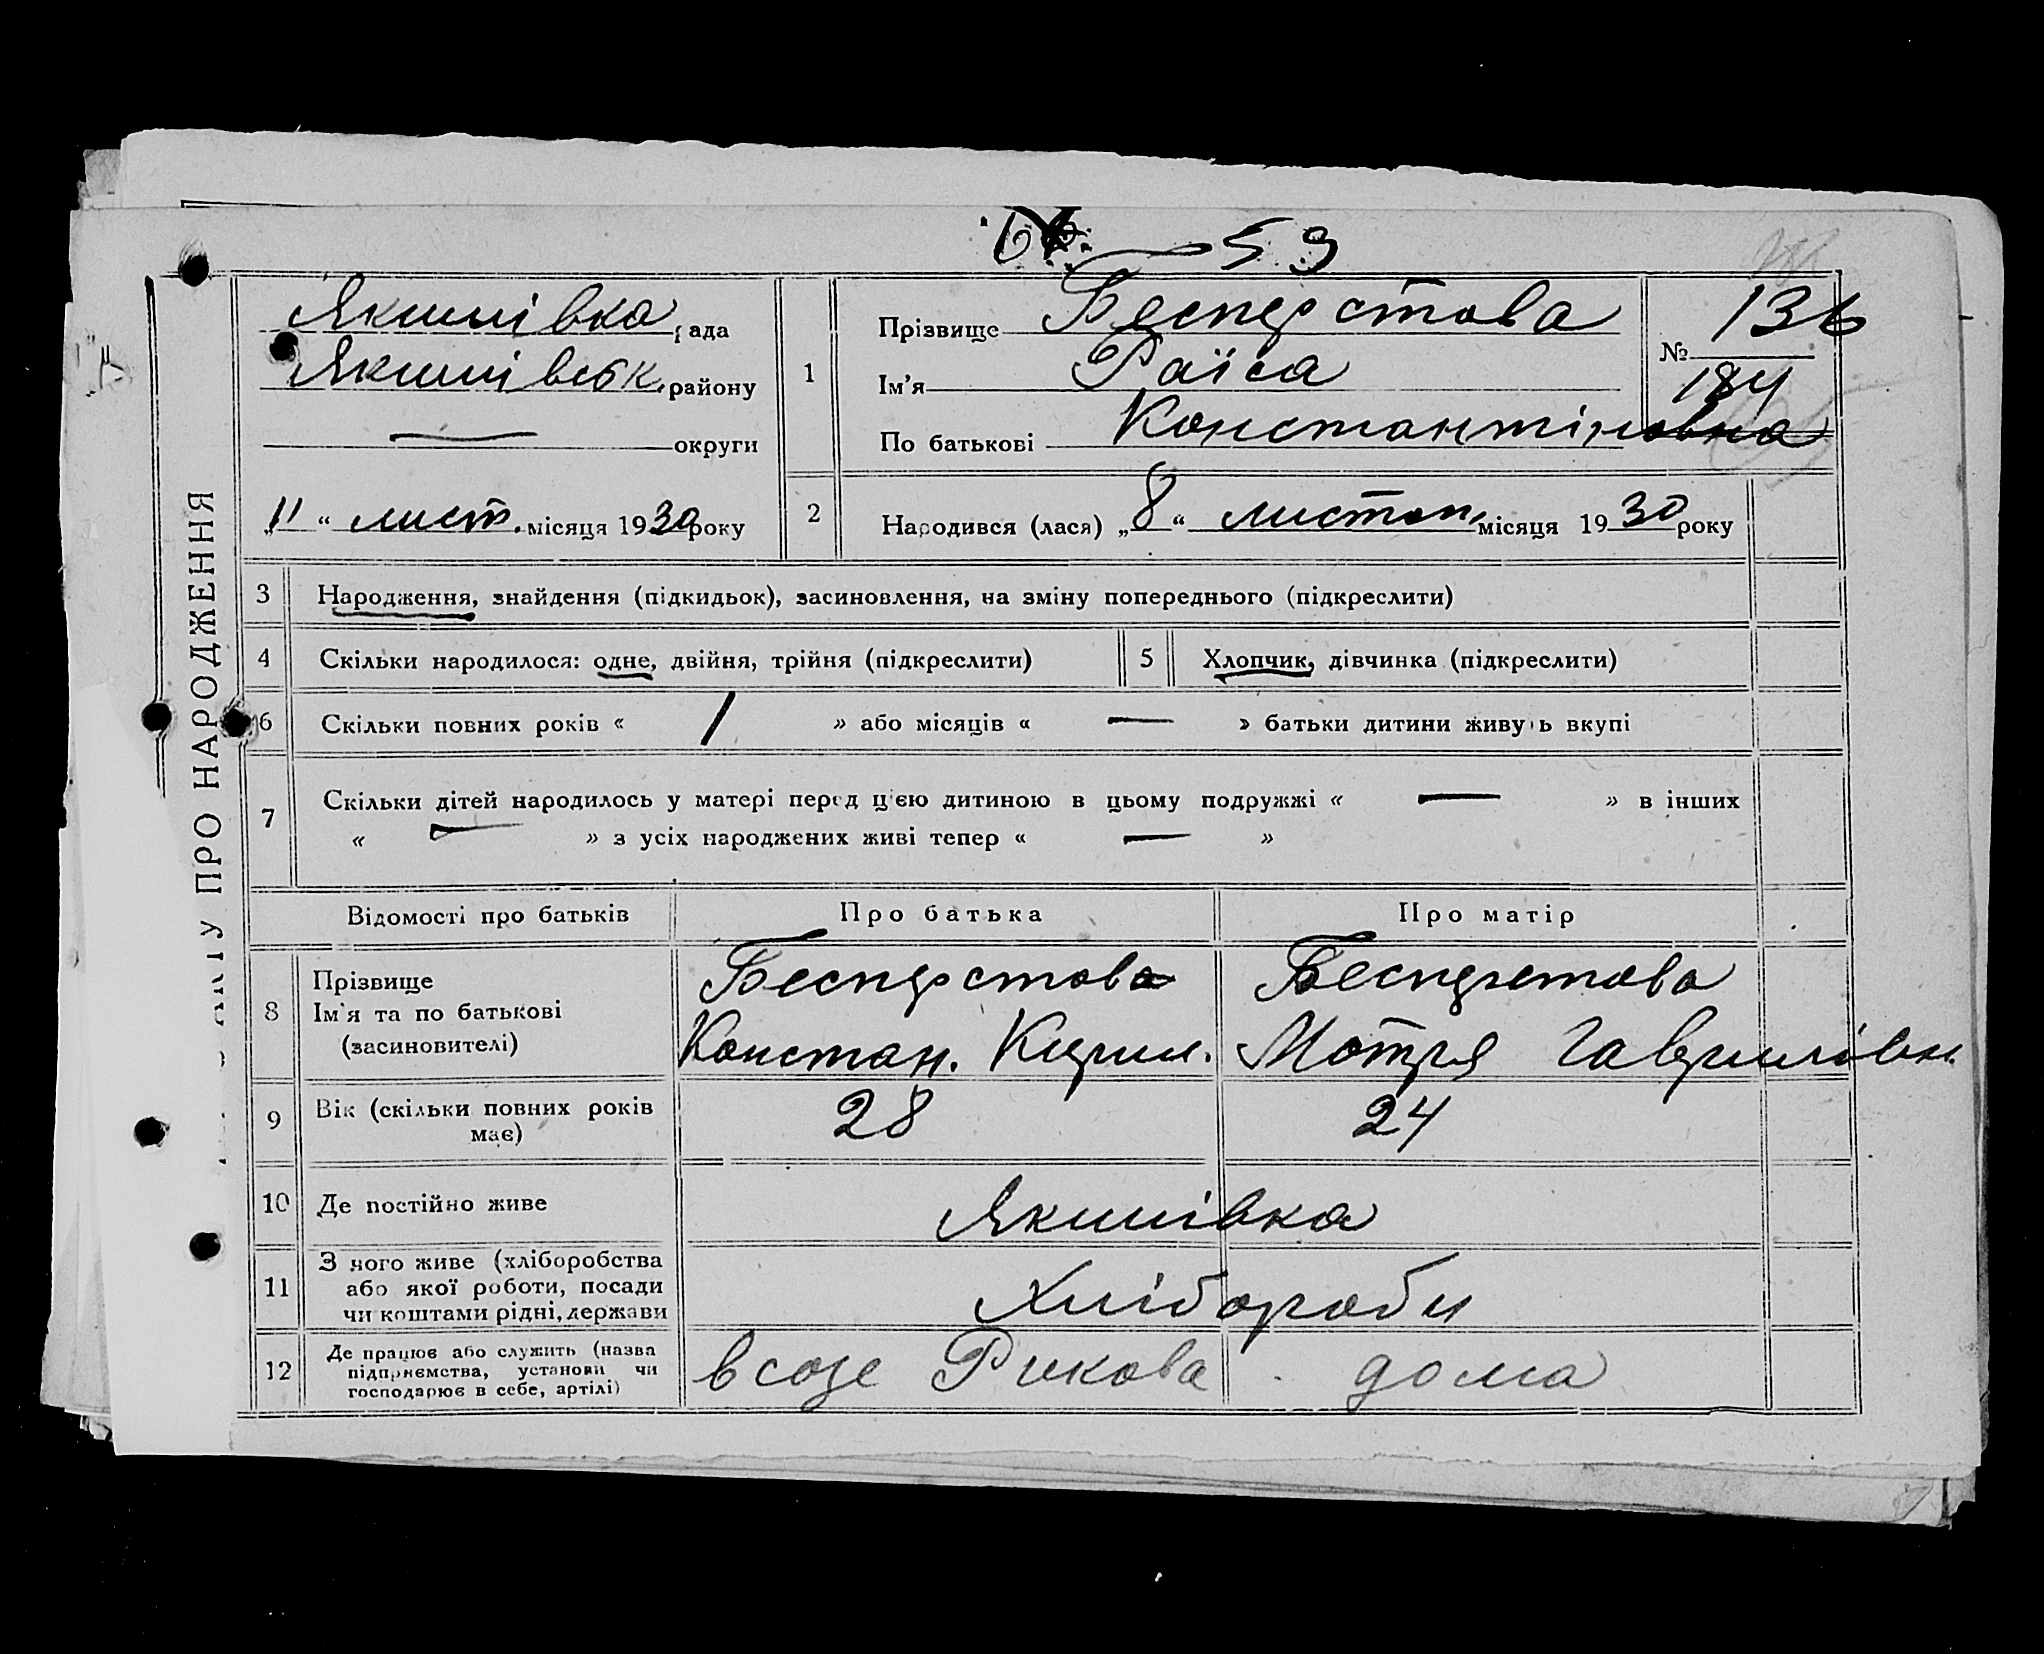 59
Якимівка рада
Якимівськ. району
— округи
„11“ лист. місяця 1930 року
1
Прізвище Бесперстова
Ім'я Раїса
По батькові Константіновна
№ 136
184
2
Народився (лася) „8“ листоп. місяця 1930 року
АКТУ ПРО НАРОДЖЕННЯ
3 Народження, знайдення (підкидьок), засиновлення, на зміну попереднього (підкреслити)
4 Скільки народилося: одне, двійня, трійня (підкреслити)
5 Хлопчик, дівчинка (підкреслити)
6 Скільки повних років « 1 » або місяців « — » батьки дитини живуть вкупі
7 Скільки дітей народилось у матері перед цією дитиною в цьому подружжі « — » в інших
« — » з усіх народжених живі тепер « — »
Відомості про батьків Про батька Про матір
8 Прізвище
Ім'я та по батькові
(засиновителі)
Бесперстова
Констан. Кирил.
Бесперстова
Мотря Гаврилівн.
9 Вік (скільки повних років
має)
28 24
10 Де постійно живе Якимівка
11 З чого живе (хліборобства
або якої роботи, посади
чи коштами рідні, держави
Хлібороби
12 Де працює або служить (назва
підприємства, установи чи
господарює в себе, артілі)
в созе Рикова дома